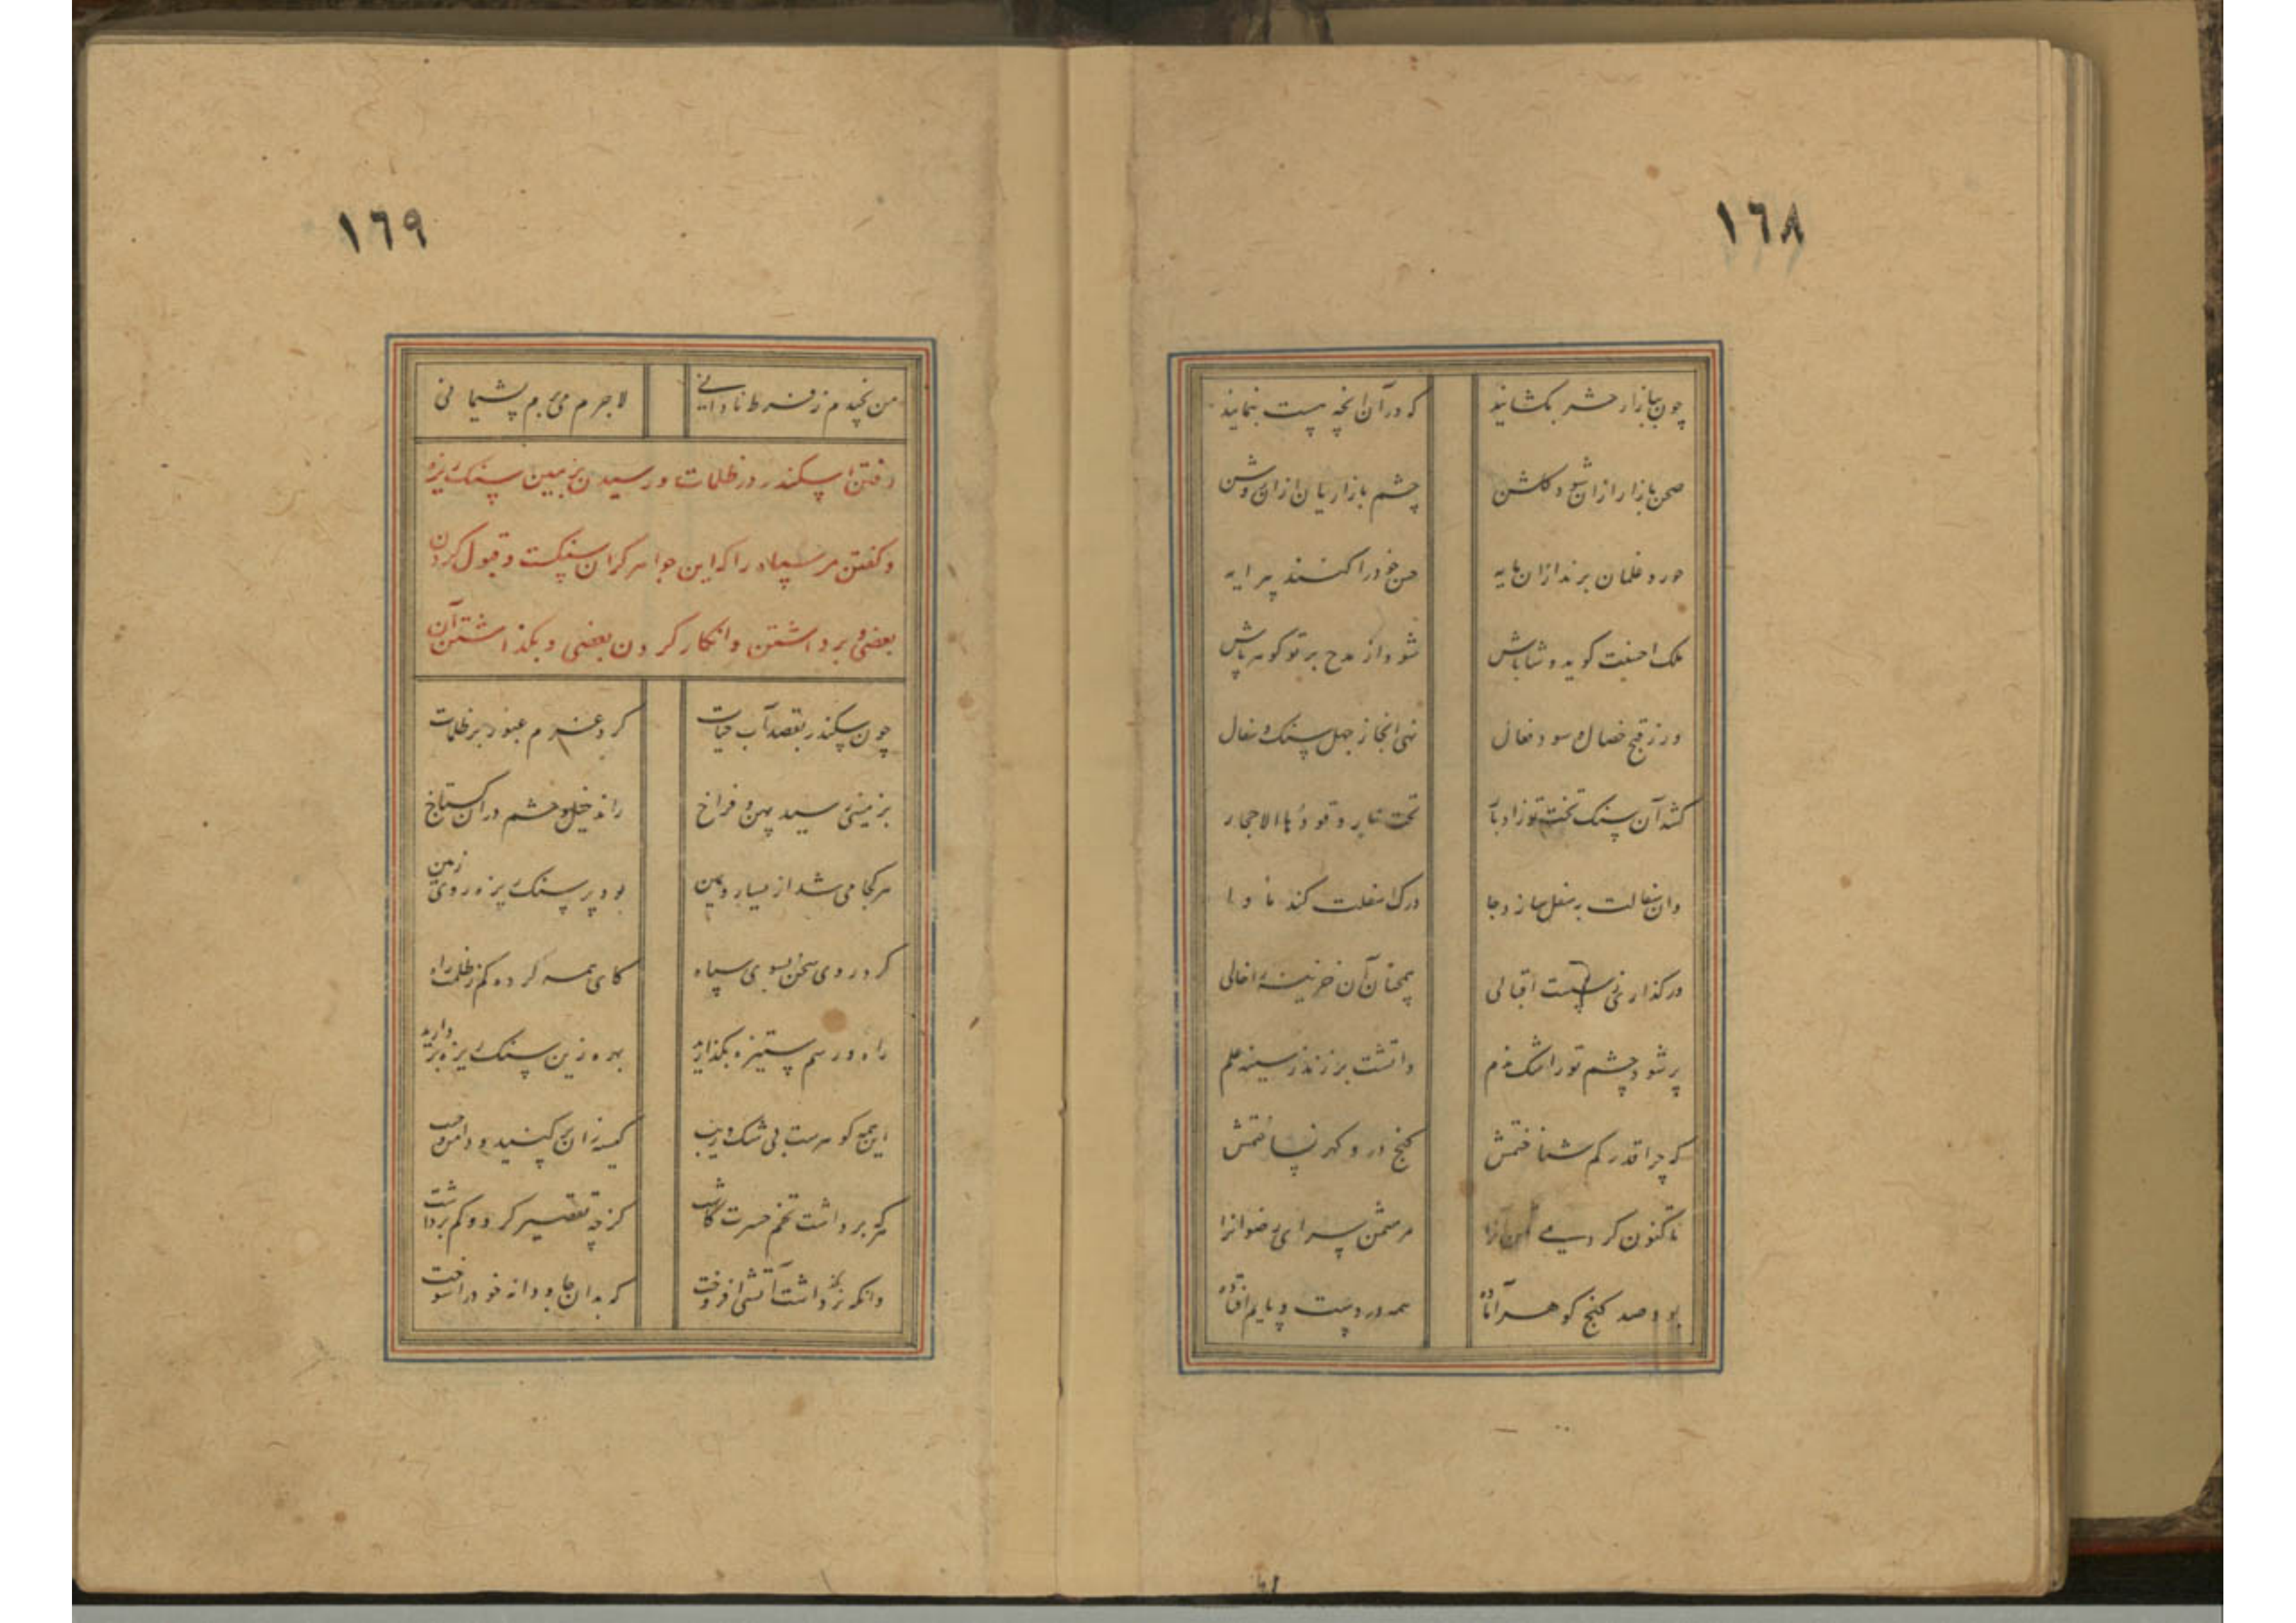 ١٦٨
چون ببازار حشر بکشایند که در آن آنچه هست بنمایند
صحن بازار ازان شود کلشن چشم بازاریان ازان روشن
حور و غلمان برند ازان مایه حسن خود را کنند پیرایه
ملک احسنت کوید و شاباش شود از مدح بر تو کوهر پاش
ور ز قبح خصال و سود فعال نهی آنجا ز جهل سنک و سفال
کشد آن سنک تخت تو زادبار تحت نار وقودها الاحجار
وان سفالت بسفل سازد جا درک اسفلت کند ماوا
ور کذاری نهی ست اقبالی همچنان آن خزینه را خالی
پر شود چشم تو ز اشک ندم و آتشت بر زند ز سینه علم
که چرا قدر کم شناختمش کنج در و کهر نساختمش
تا کنون کردیمی ثمن آنرا مر مثمن سرای رضوانرا
بود صد کنج کوهر آماده همه در دست و پایم افتاده
١٦٩
من نچیدم ز فرط نادانی لاجرم می برم پشیمانی
رفتن اسکندر در ظلمات و رسیدن بزمین سنک ریزه
و کفتن مر سپاه را که این جواهر کران سنکست و قبول کردن
بعضی و برداشتن و انکار کردن بعضی و بکذاشتن آن
چون سکندر بقصد آب حیات کرد عزم عبور بر ظلمات
بزمینی رسید پهن و فراخ راند خیل و حشم در آن کستاخ
هر کجا می شد از یسار و یمین بود پر سنک ریزه روی زمین
کرد روی سخن بسوی سپاه کای همه کرده کم ز ظلمت راه
راه و رسم ستیزه بکذارید بهره زین سنک ریزه بردارید
این همه کوهرست بی شک و ریب کیسه زان پر کنید و دامن و جیب
هر که برداشت تخم حسرت کاشت کز چه تقصیر کرد و کم برداشت
وانکه بکذاشت آتشی افروخت که بدان جان و دانه خود را سوخت